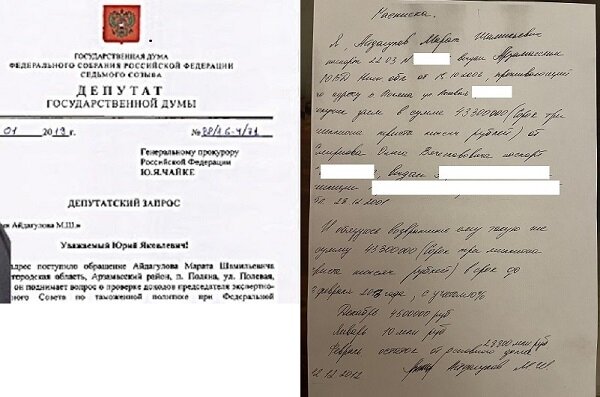 ГОСУДАРСТВЕННАЯ ДУМА
ФЕДЕРАЛЬНОГО СОБРАНИЯ РОССИЙСКОЙ ФЕДЕРАЦИИ
СЕДЬМОГО СОЗЫВА
ДЕПУТАТ
ГОСУДАРСТВЕННОЙ ДУМЫ
01 2019 г.
Генеральному прокурору
Российской Федерации
Ю.Я.ЧАЙКЕ
ДЕПУТАТСКИЙ ЗАПРОС
Айдагулова М.Ш.»
Уважаемый Юрий Яковлевич!
адрес поступило обращение Айдагулова Марата Шамильевича
городская область, Арзамасский район, п. Поляна, ул. Полевая,
он поднимает вопрос о проверке доходов председателя экспертно-
ного Совета по таможенной политике при Федеральной
Расписка.
Я, Айдагулов Марат Шамильевич
паспорт 22 03 N выдан Арзамасским
по адресу п. ул
займ в сумме 43300000 (Сорок три
миллиона триста тысяч рублей) от
Олега Вячеславовича паспорт
выдан
23.12.2001
И обязуюсь возвратить ему такую же
сумму 43300000 (Сорок три миллиона
триста тысяч рублей) в срок до
февраля года, с учетом 10%
Декабрь 4500000 руб
Январь 10 млн руб
Февраль остаток от основного долга
12.12.2012 Айдагулов М.Ш.